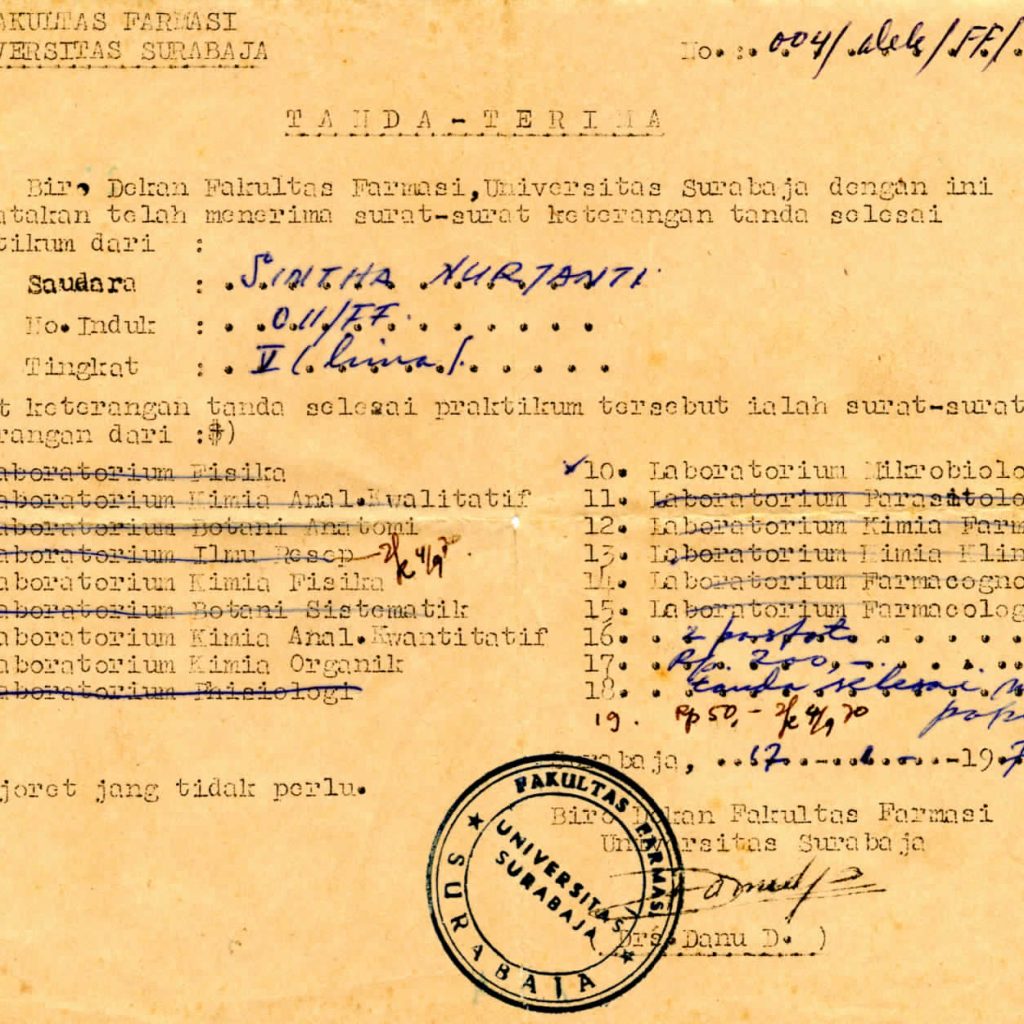 AKULTAS FARMASI
VERSITAS SURABAJA
No. : 004/ dek/FF/
TANDA-TERIMA
Bir. Dekan Fakultas Farmasi, Universitas Surabaja dengan ini
atakan telah menerima surat-surat keterangan tanda selesai
tikum dari :
Saudara : SINTHA NURJANTI
No. Induk : 011/FF
Tingkat : V (lima)
t keterangan tanda selesai praktikum tersebut ialah surat-surat
rangan dari : *)
aboratorium Fisika
aboratorium Kimia Anal. Kwalitatif
aboratorium Botani Anatomi
aboratorium Ilmu Resep 4/9 70
aboratorium Kimia Fisika
aboratorium Botani Sistematik
aboratorium Kimia Anal. Kwantitatif
aboratorium Kimia Organik
aboratorium Phisiologi
10. Laboratorium Mikrobiolo
11. Laboratorium Parasitolo
12. Laboratorium Kimia Farm
13. Laboratorium Kimia Klin
14. Laboratorium Farmacogno
15. Laboratorium Farmacolog
16. 2 pasfoto
17. Rp. 200,-
18. tanda selesai
19. Rp 50,- 4/9 70
Surabaja, 17 - 19
joret jang tidak perlu.
Biro Dekan Fakultas Farmasi
Universitas Surabaja
(Drs. Danu D. )
FAKULTAS FARMASI
UNIVERSITAS
SURABAJA
SURABAJA